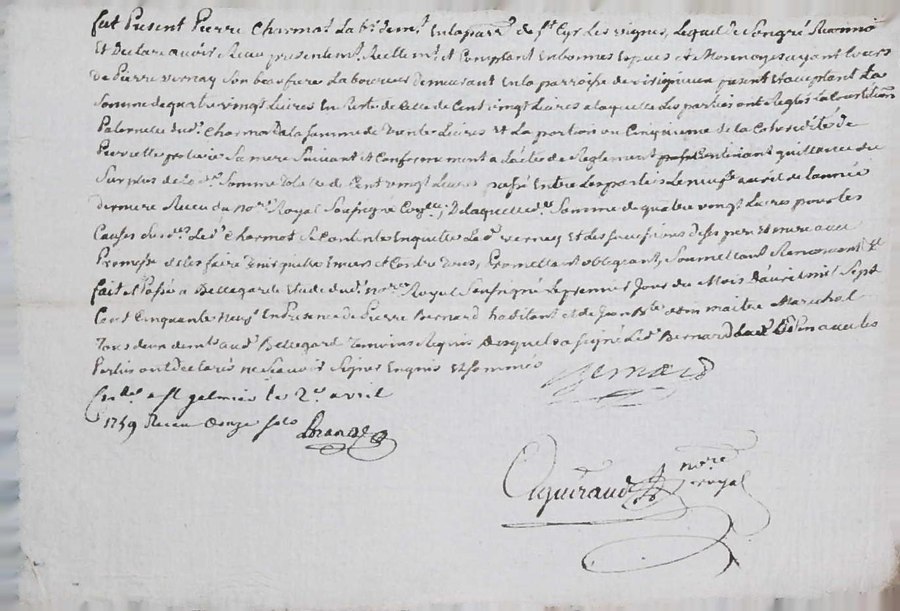 fut Present Pierre Charmot La br. demt. En la parr. de st Cyr Les vignes, Lequel de Son gré
Et Declare avoir Receu presentemt. Reellemt. et Comptant En bonnes Especes de Monnoyes ayant Cours
de Pierre vernay Son beau frere Laboureur demeurant En la parroisse de present Et acceptant La
Somme de quatre vingt Livres En Reste de Celle de Cent vingt Livres a laquelle Les parties ont Reglés La Constitution
Paternelle dud. Charmot a la Somme de Trente Livres Et La portion ou Cinquieme de la de
Pierrette Sa mere Suivant et Conformement a L'acte de Reglement Contenant quittance du
Surplus de lad. Somme Totalle de Cent vingt Livres passé Entre Les parties Le neuf avril de L'année
derniere Receu du nore. Royal Soussigné De laquelle de. Somme de quatre vingt Livres pour les
Causes Led. Charmot Se Contente En quitte Le d. vernay Et Les Siens avec
Promesse de Les faire Tenir quitte Envers et Contre Tous, Promettant obligeant, Soumettant Renoncant Et
fait et Passé a Bellegarde Etude dud. nore. Royal Soussigné Le premier Jour du Mois d'avril mil Sept
Cent Cinquante Neuf En Presence de Pierre Bernard habitant et de Jean Bte. maitre Marechal
Tous deux demts. aud. Bellegarde Temoins Requis Desquels a Signé Led. Bernard avec les
Parties ont declarés ne Scavoir Signer Enquis Et Sommés
Bernard
a st galmier le 2e. avril
1759 Receu Douze sols
nore.
royal